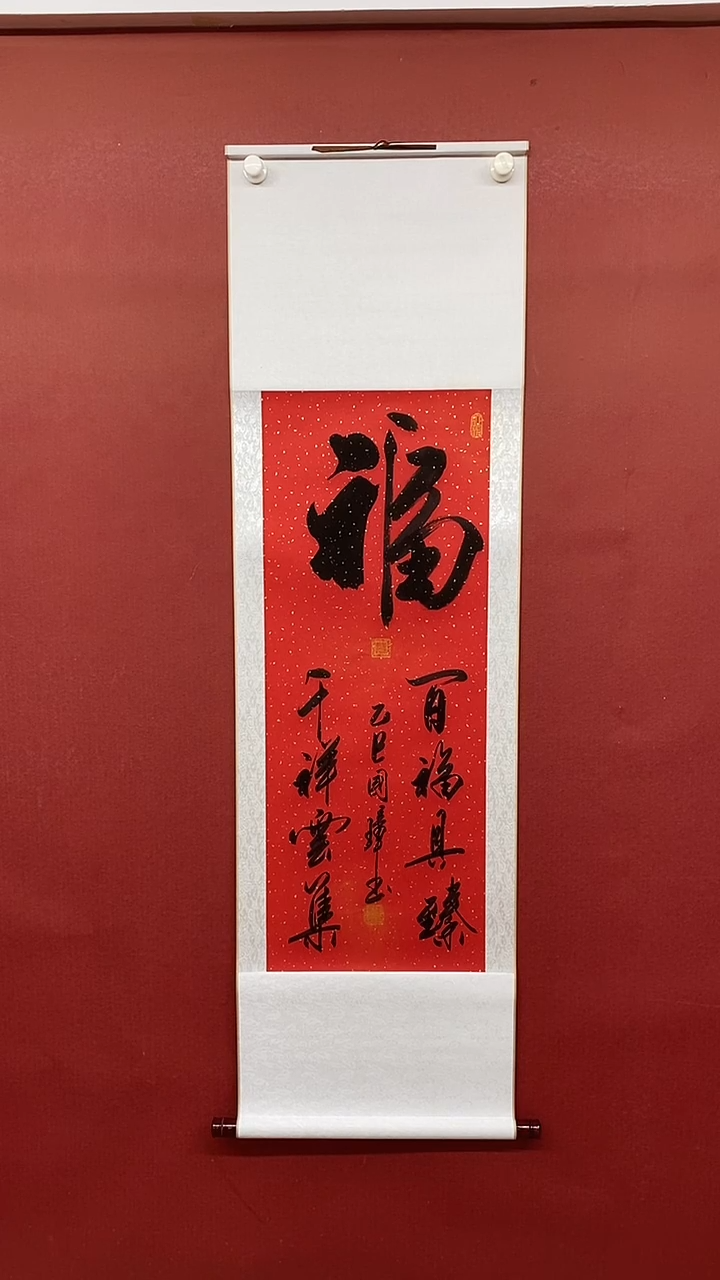 福
百福具臻
乙巳國璋書
千祥雲集